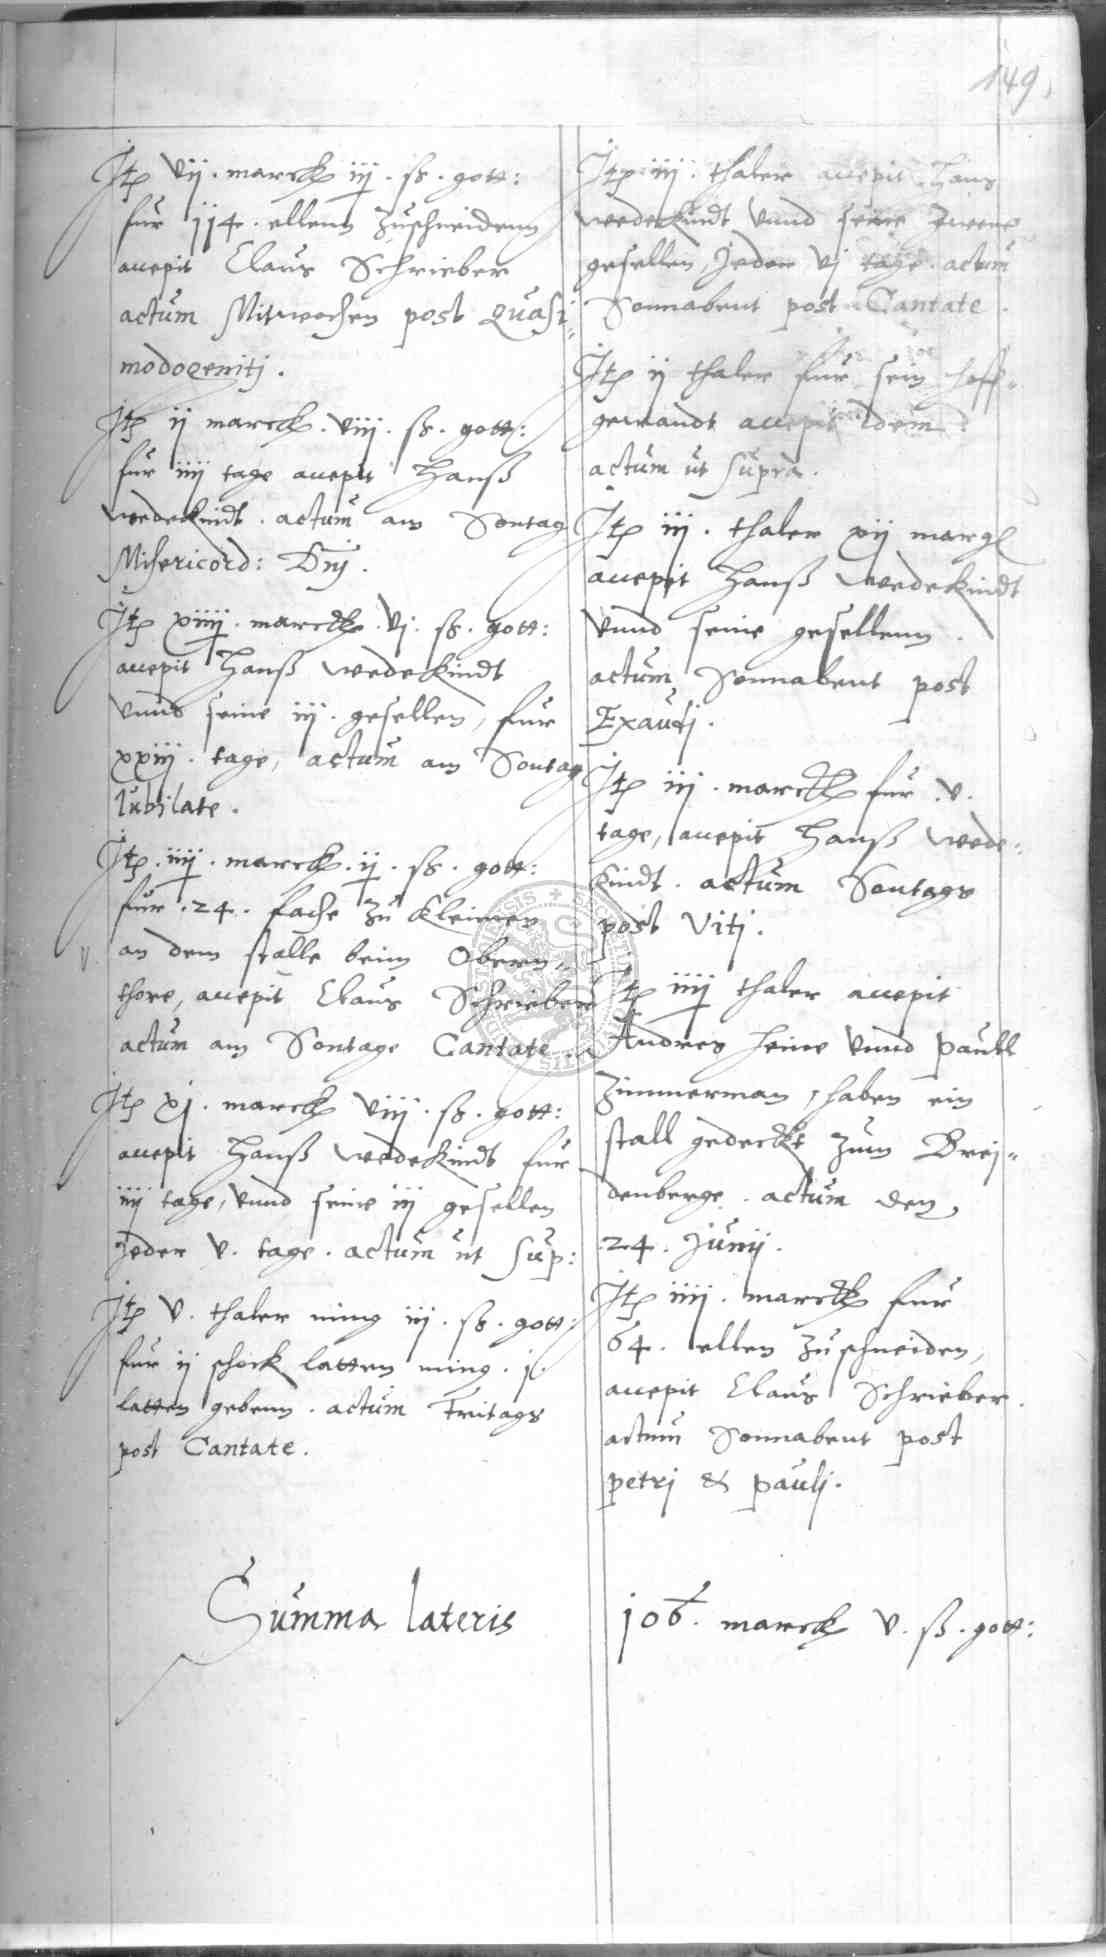 149
Jtem vij. marck iij. ß. gott:
fur 114. ellenn zuschneidenn
accepit Claus Schrieber
actum Mitwochen post Quasi-
modogeniti.
Jtem ij marck. viij. ß. gott:
fur iiij tage accepit Hanß
wedekindt. actum am Sontag
Misericord: Dnj.
Jtem xiiij. marck. vj. ß. gott:
accepit Hanß wedekindt
vnnd seine iij. gesellen, fur
xxiij. tage, actum am Sontag
Iubilate.
Jtem. iiij. marck. ij. ß. gott:
fur .24. fache zu kleimen
an dem stalle beim Obern-
thore, accepit Claus Schrieber
actum am Sontage Cantate.
Jtem xj. marck viij. ß. gott:
accepit Hanß wedekindt fur
iiij tage, vnnd seine iij gesellen
jeder v. tage. actum ut sup:
Jtem v. thaler ming iij. ß. gott:
fur ij schock latten ming. j.
latten gebenn. actum Fritags
post Cantate.
Jtem iiij. thaler accepit Hans
wedekindt vnnd seine zweene
gesellen, jeder vj tage. actum
Sonnabent post Cantate.
Jtem ij thaler fur sein hoff-
gewandt accepit idem
actum ut supra.
Jtem iij. thaler xij margl
accepit Hanß wedekindt
vnnd seine gesellenn.
actum Sonnabent post
Exaudj.
Jtem iij. marck fur .v.
tage, accepit Hanß wede-
kindt. actum Sontags
post Viti.
Jtem iiij thaler accepit
Andres Heine vnnd Paull
Zimmerman, haben ein
stall gedeckt zum Brej-
denberge. actum den
24. Junij.
Jtem iiij. marck fur
64. ellen zuschneiden,
accepit Claus Schrieber.
actum Sonnabent post
petrj & paulj.
Summa lateris 106. marck v. ß. gott: